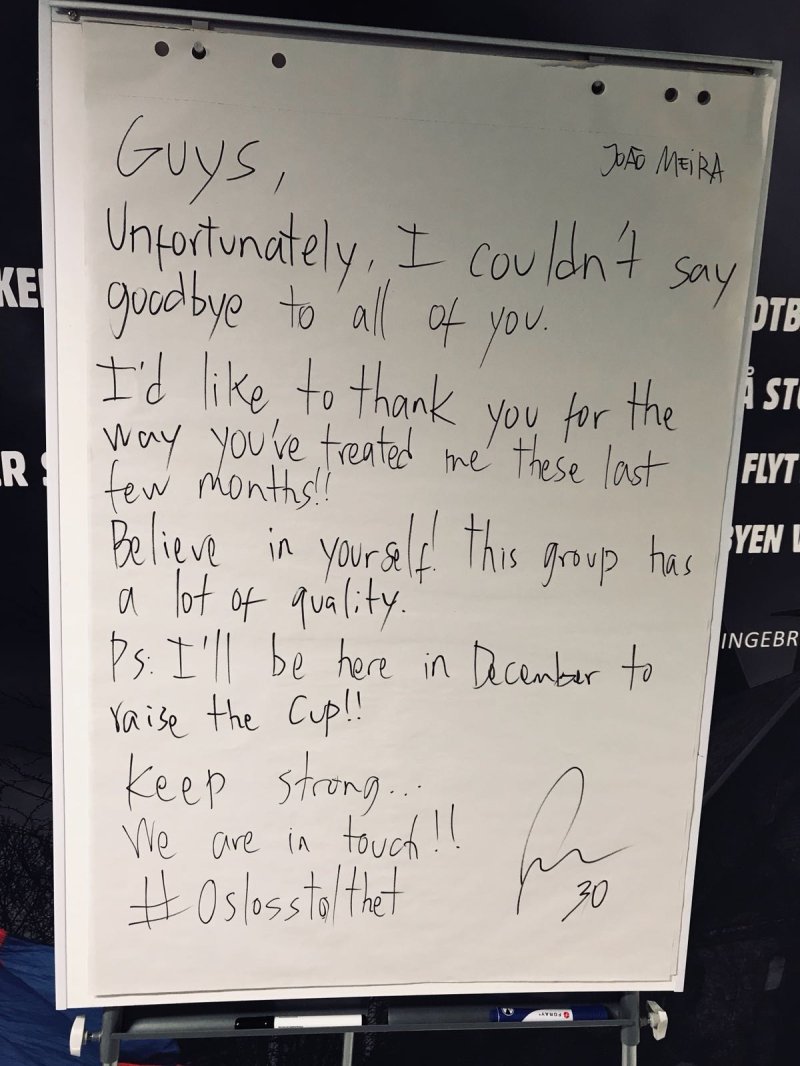 Guys,
João Meira
Unfortunately, I couldn't say
goodbye to all of you.
I'd like to thank you for the
way you've treated me these last
few months!!
Believe in yourself! this group has
a lot of quality.
Ps: I'll be here in December to
raise the Cup!!
Keep strong...
We are in touch!!
#Oslosstolthet
30
KE
R S
OTB
Å STO
FLYT
BYEN V
INGEBR
FORAY